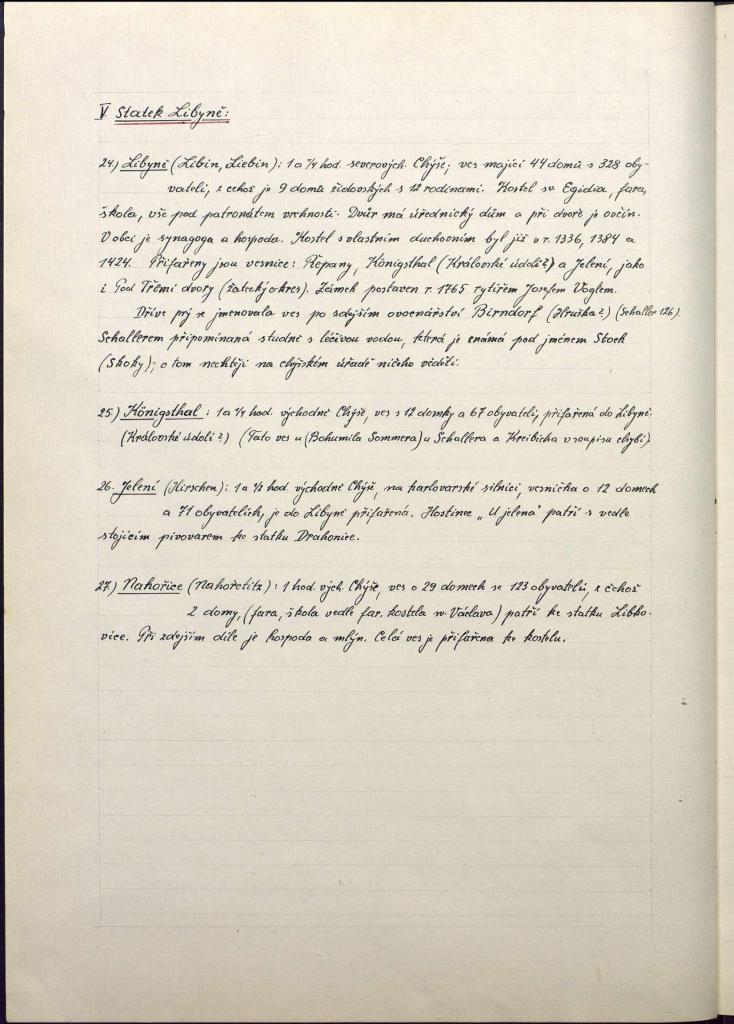 V. Statek Libyně:
24.) Libyně (Libin, Liebin): 1 a 1/4 hod. severových. Chýše; ves mající 44 domů s 328 oby-
vateli, z čehož je 9 domů židovských s 12 rodinami. Kostel sv. Egidia, fara,
škola, vše pod patronátem vrchnosti. Dvůr má úřednický dům a při dvoře je ovčín.
V obci je synagoga a hospoda. Kostel s vlastním duchovním byl již v r. 1336, 1384 a
1424. Přifařeny jsou vesnice: Řepany, Königsthal (Královské údolí?) a Jelení, jako
i Pod Třemi dvory (žatecký okres). Zámek postaven r. 1765 rytířem Josefem Voglem.
Dříve prý se jmenovala ves po zdejším ovocnářství Birndorf (Hruška?) (Schaller 126).
Schallerem připomínaná studně s léčivou vodou, která je známá pod jménem Stock
(Skoky), o tom nechtějí na chýšském úřadě ničeho věděti.
25.) Königsthal: 1 a 1/4 hod. východně Chýše, ves s 12 domky a 67 obyvateli, přifařená do Libyně.
(Královské údolí?) (Tato ves u (Bohumila Sommera) u Schallera a Kreibicha v soupisu chybí).
26. Jelení (Hirschen): 1 a 1/2 hod. východně Chýše, na karlovarské silnici, vesnička o 12 domech
a 71 obyvatelích, je do Libyně přifařená. Hostinec „U jelena" patří s vedle
stojícím pivovarem ke statku Drahonice.
27.) Nahořice (Nahořetitz): 1 hod. vých. Chýše, ves o 29 domech se 123 obyvatelů, z čehož
2 domy, (fara, škola vedle far. kostela sv. Václava) patří ke statku Libko-
vice. Při zdejším díle je hospoda a mlýn. Celá ves je přifařena ke kostelu.